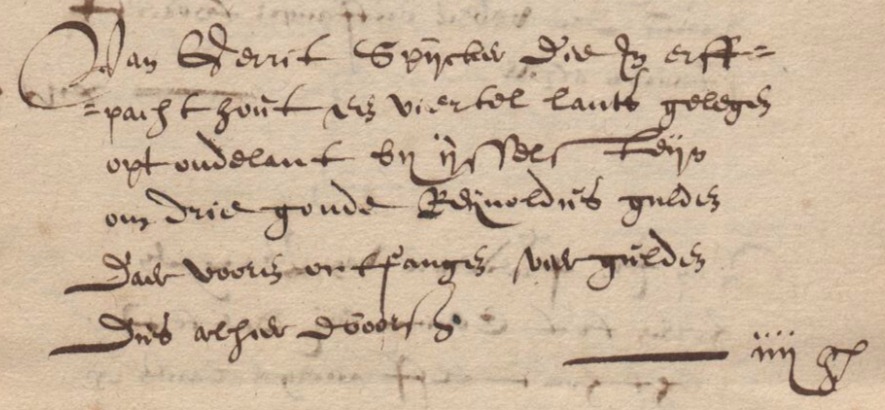 Van Gerrit Spijcker die In erff=
=pacht hout een viertel lants gelegen
opt oudelant bij ijssels keijn
om drie goude Reijnoldus gulden
Daer voeren ontfangen vier gulden
Dus alhier dvoors
iiij g